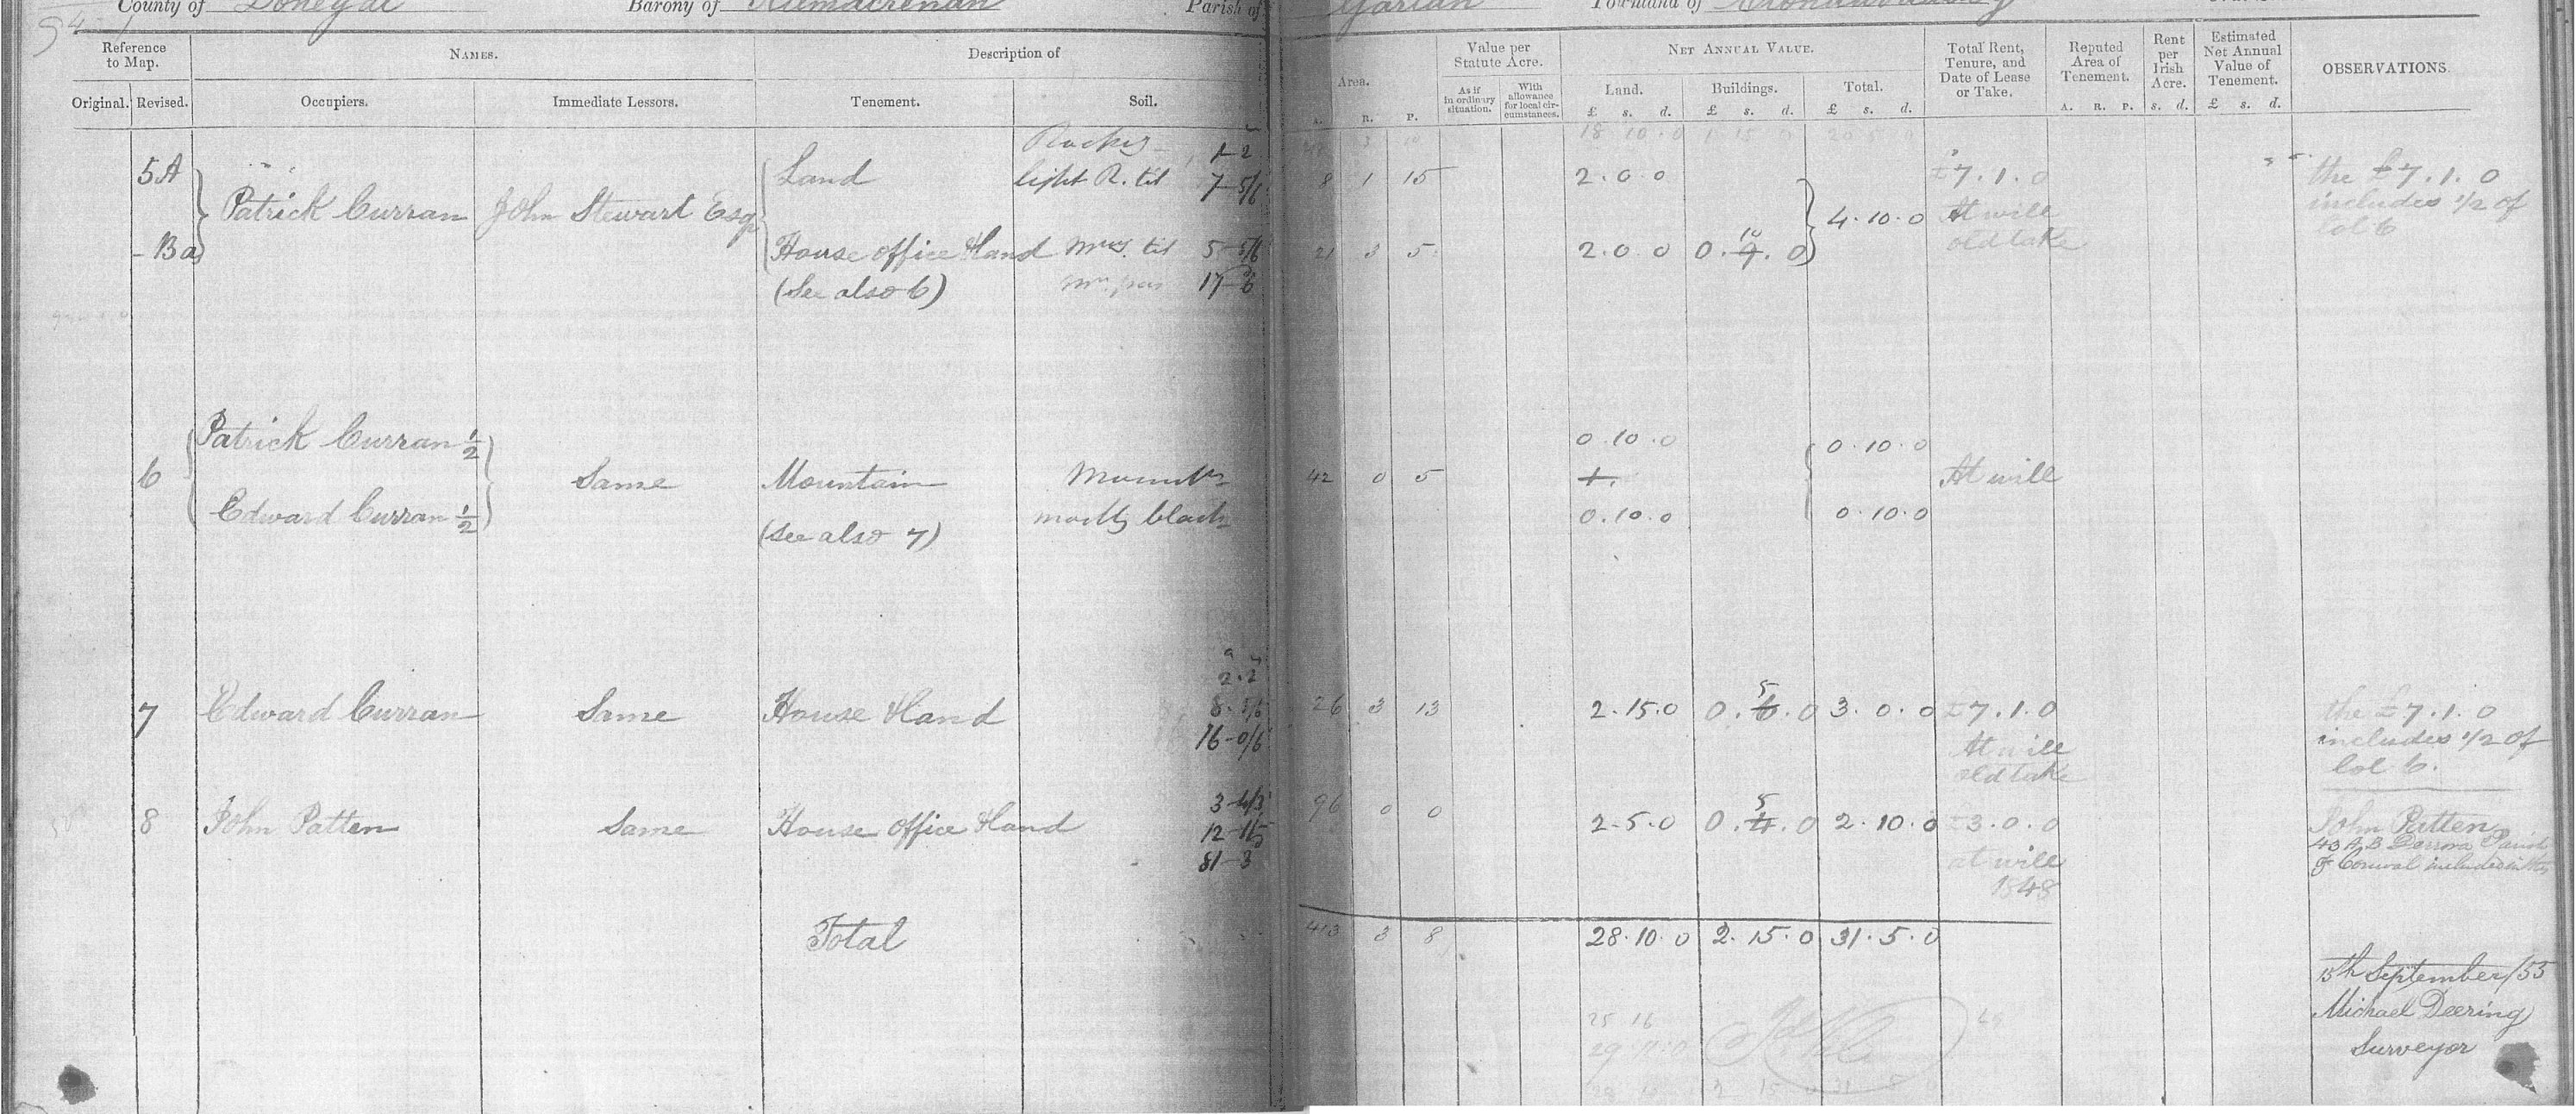 County of Donegal Barony of Kilmacrenan Parish of Gartan Townland of
Reference to Map. NAMES. Description of Area. Value per Statute Acre. NET ANNUAL VALUE. Total Rent, Tenure, and Date of Lease or Take. Reputed Area of Tenement. Rent per Irish Acre. Estimated Net Annual Value of Tenement. OBSERVATIONS.
Original. Revised. Occupiers. Immediate Lessors. Tenement. Soil. As if in ordinary situation. With allowance for local circumstances. Land. Buildings. Total.
A. R. P. £ s. d. £ s. d. £ s. d. A. R. P. s. d. £ s. d.
18 10 0 1 15 0 20 5 0
Rocky 1-2
5A Land light R. til 7-5/6 8 1 15 2.0.0 £7.1.0 the £7.1.0
Patrick Curran John Stewart Esqr 4.10.0 At will includes 1/2 of
-Ba House office & land til 5-5/6 21 3 5 2.0.0 0.9.0 10 old take lot 6
(See also 6) 17-6
Patrick Curran 1/2 0.10.0 0.10.0
6 Same Mountain 42 0 5 1. At will
Edward Curran 1/2 mostly black 0.10.0 0.10.0
(see also 7)
2.2
7 Edward Curran Same House & land 8-5/6 26 3 13 2.15.0 0.6.0 5 3.0.0 £7.1.0 the £7.1.0
16-0/6 At will includes 1/2 of
old take lot 6.
8 John Patten Same House office & land 3-4/3 96 0 0 2.5.0 0.4.0 5 2.10.0 £3.0.0 John Patten
12 81-3 at will 43 A B Parish
1848 of Conwal included in this
Total 413 3 8 28.10.0 2.15.0 31.5.0
15th September/53
Michael Deering
Surveyor
25 16